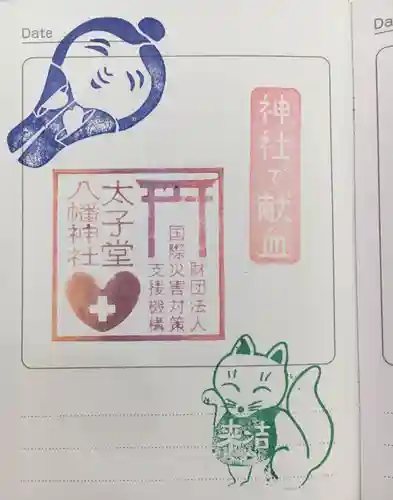 Date
Da
神社で献血
太子堂
八幡神社
財団法人
国際災害対策
支援機構